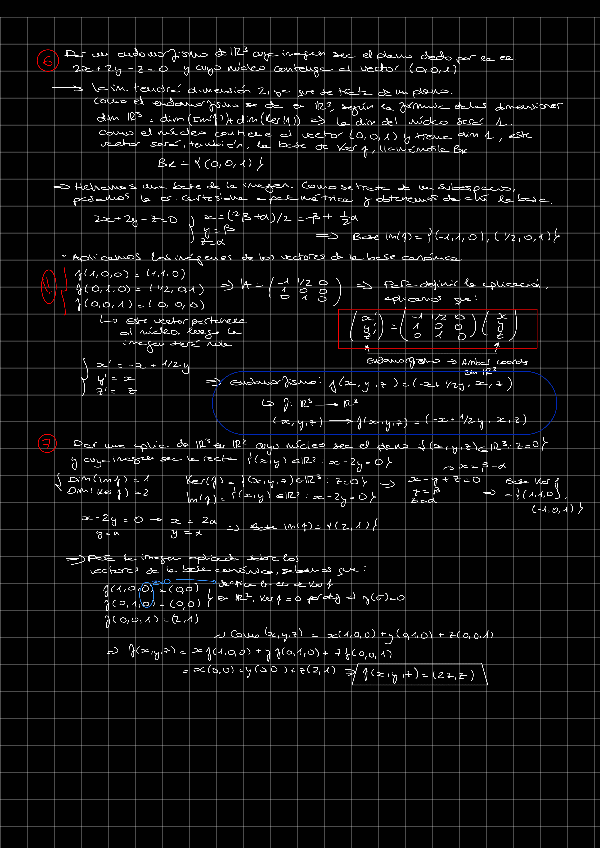 6 Dar un endomorfismo de ℝ³ cuya imagen sea el plano dado por la ec
2x+2y-z=0 y cuyo núcleo contenga al vector (0,0,1)
→ La im tendrá dimensión 2, ya que se trata de un plano.
Como el endomorfismo es de en ℝ³, según la fórmula de las dimensiones
dim ℝ³ = dim(Im f) + dim(Ker f) ⇒ la dim del núcleo será 1.
Como el núcleo contiene al vector (0,0,1) y tiene dim 1, este
vector será, también, la base de Ker f, llamémosla Bk
Bk = {(0,0,1)}
⇒ Hallamos una base de la imagen. Como se trata de un subespacio,
pasamos la ec. cartesiana a paramétrica y obtenemos de ahí la base.
2x+2y-z=0 { x=(-2β+α)/2 = -β + 1/2 α
y=β
z=α
⇒ Base Im(f) = {(-1,1,0), (1/2,0,1)}
Aplicamos las imágenes de los vectores de la base canónica
f(1,0,0) = (-1,1,0)
f(0,1,0) = (1/2,0,1)
f(0,0,1) = (0,0,0)
⇒ A = ( -1 1/2 0
1 0 0
0 1 0 )
⇒ Para definir la aplicación,
aplicamos que:
( x' y' z' ) = ( -1 1/2 0
1 0 0
0 1 0 ) ( x y z )
↳ Este vector pertenece
al núcleo, luego la
imagen será nula
{ x' = -x + 1/2 y
y' = x
z' = z
⇒ Endomorfismo: f(x,y,z) = (-x+1/2y, x, z)
↳ f: ℝ³ → ℝ³
(x,y,z) → f(x,y,z) = (-x+1/2y, x, z)
7 Dar una aplic. de ℝ³ en ℝ² cuyo núcleo sea el plano {(x,y,z)∈ℝ³: z=0}
y cuya imagen sea la recta {(x,y)∈ℝ²: x-2y=0}
{ Dim(Im f) = 1
Dim(Ker f) = 2
Ker(f) = {(x,y,z)∈ℝ³: z=0}
Im(f) = {(x,y)∈ℝ²: x-2y=0}
x=β-α
x-y+z=0
y=β
z=α
⇒ Base Ker f
= {(1,1,0),
(-1,0,1)}
x-2y=0 → x=2α
y=α y=α
⇒ Base Im(f) = {(2,1)}
vectores de la base canónica, sabemos que:
f(1,0,0) = (0,0)
f(0,1,0) = (0,0)
f(0,0,1) = (2,1)
Como (x,y,z) = x(1,0,0) + y(0,1,0) + z(0,0,1)
⇒ f(x,y,z) = x f(1,0,0) + y f(0,1,0) + z f(0,0,1)
= x(0,0) + y(0,0) + z(2,1) ⇒ f(x,y,z) = (2z,z)